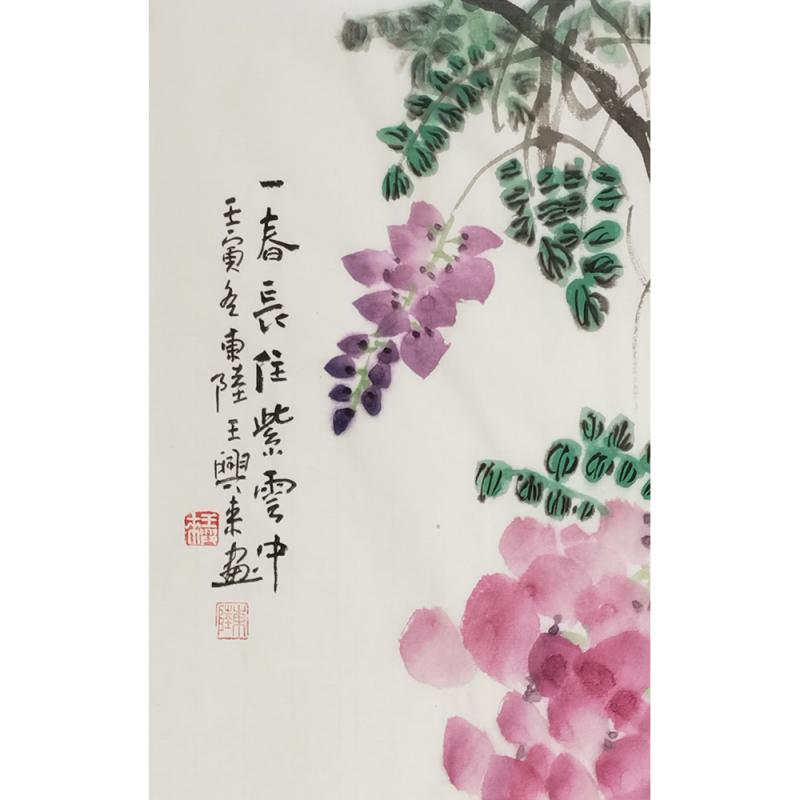 一春長住紫雲中
壬寅冬東陸王興来畫
東陸